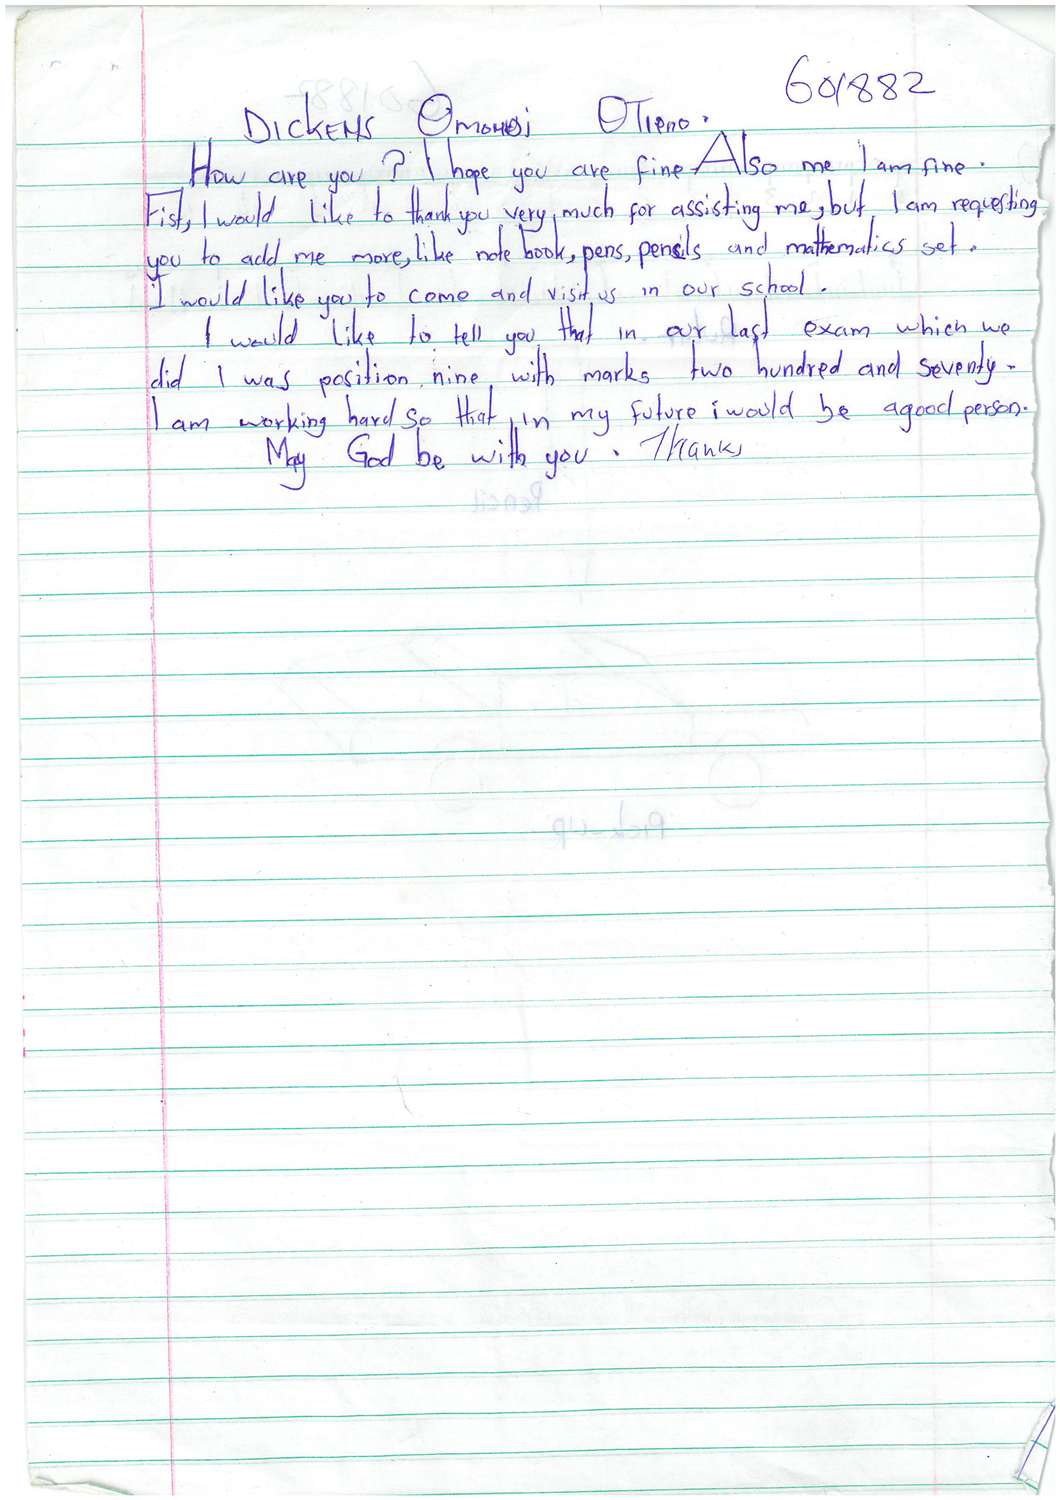 601882
DICKENS Omondi OTIENO.
How are you? I hope you are fine Also me I am fine.
Fist, I would like to thank you very much for assisting me, but I am requesting
you to add me more, like note book, pens, pensils and mathematics set.
I would like you to come and visit us in our school.
I would like to tell you that in our last exam which we
did I was position nine with marks two hundred and seventy.
I am working hard so that in my future i would be agood person.
May God be with you. Thanks
Pencil
Pick-up